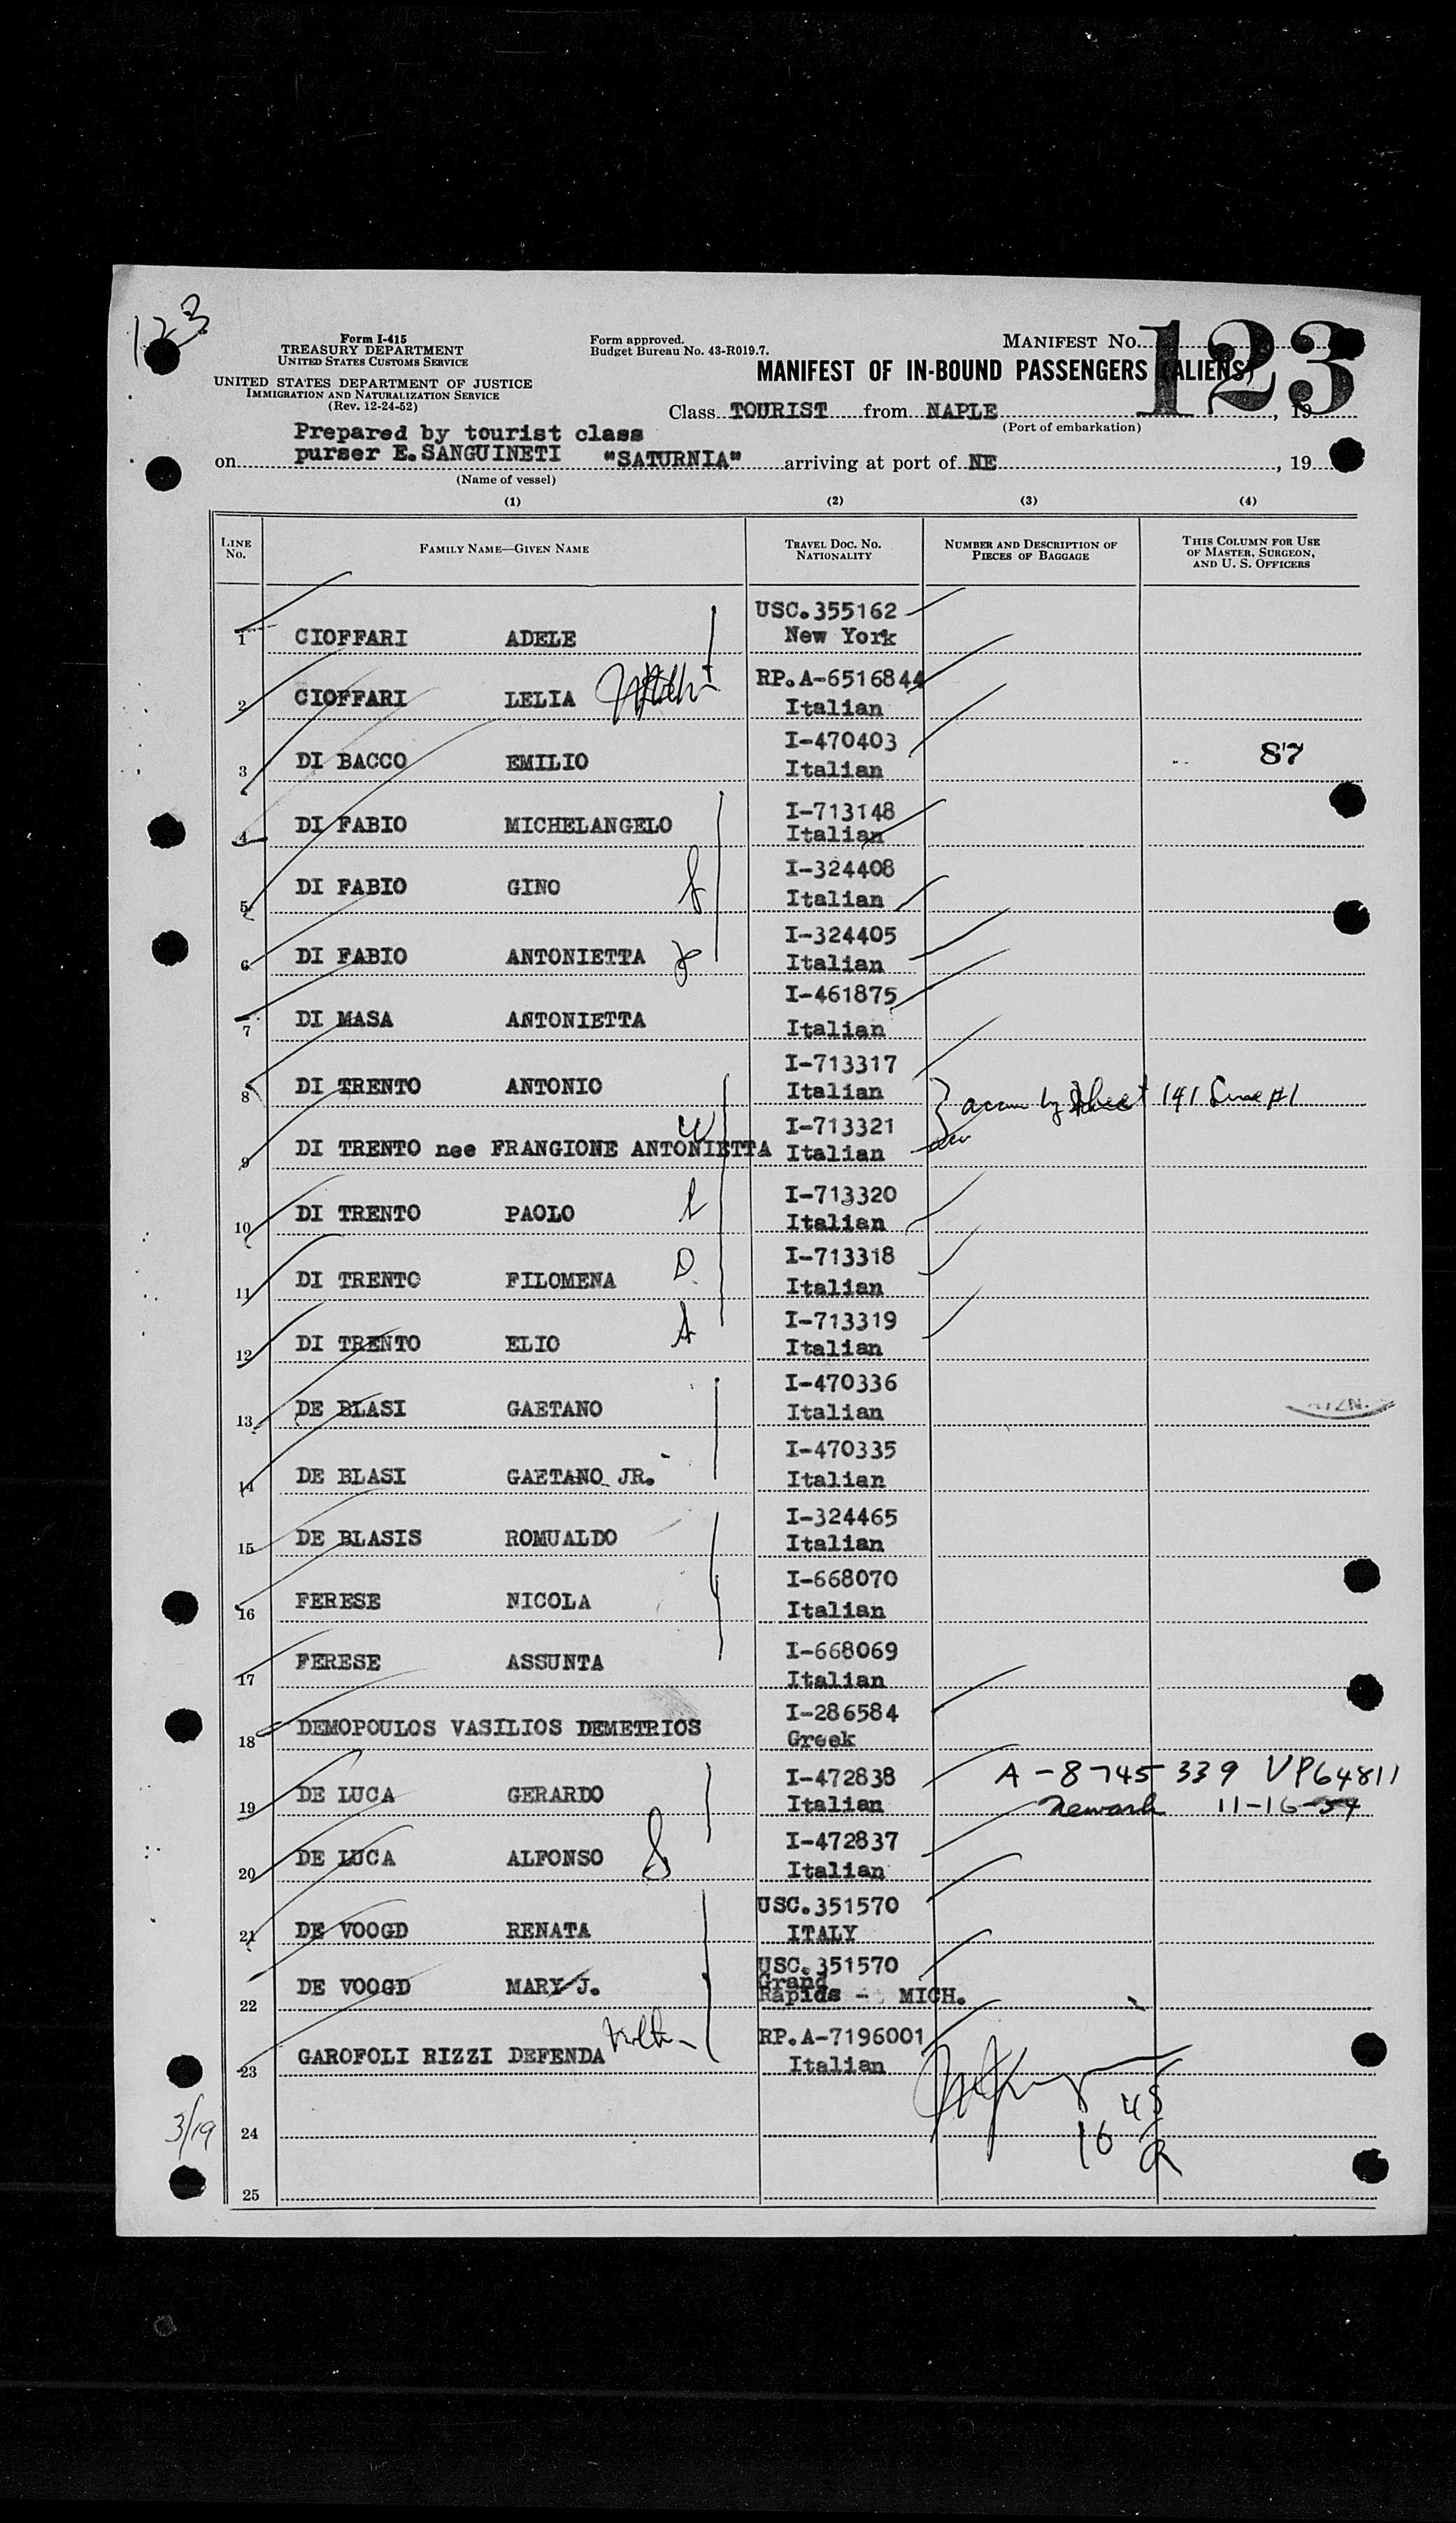 123
Form I-415
TREASURY DEPARTMENT
UNITED STATES CUSTOMS SERVICE
UNITED STATES DEPARTMENT OF JUSTICE
IMMIGRATION AND NATURALIZATION SERVICE
(Rev. 12-24-52)
Form approved.
Budget Bureau No. 43-R019.7.
MANIFEST No. 123
MANIFEST OF IN-BOUND PASSENGERS (ALIENS)
Class TOURIST from NAPLE, 19
(Port of embarkation)
Prepared by tourist class
on purser E.SANGUINETI "SATURNIA" arriving at port of NE, 19
(Name of vessel)
(1) (2) (3) (4)
LINE No. FAMILY NAME—GIVEN NAME TRAVEL DOC. No. NATIONALITY NUMBER AND DESCRIPTION OF PIECES OF BAGGAGE THIS COLUMN FOR USE OF MASTER, SURGEON, AND U. S. OFFICERS
USC.355162
1 CIOFFARI ADELE New York
RP.A-6516844
2 CIOFFARI LELIA Italian
I-470403
3 DI BACCO EMILIO Italian 87
I-713148
4 DI FABIO MICHELANGELO Italian
I-324408
5 DI FABIO GINO Italian
I-324405
6 DI FABIO ANTONIETTA Italian
I-461875
7 DI MASA ANTONIETTA Italian
I-713317
8 DI TRENTO ANTONIO Italian accom by sheet 141 Line #1
I-713321
9 DI TRENTO nee FRANGIONE ANTONIETTA W Italian
I-713320
10 DI TRENTO PAOLO Italian
I-713318
11 DI TRENTO FILOMENA D Italian
I-713319
12 DI TRENTO ELIO Italian
I-470336
13 DE BLASI GAETANO Italian
I-470335
14 DE BLASI GAETANO JR. Italian
I-324465
15 DE BLASIS ROMUALDO Italian
I-668070
16 FERESE NICOLA Italian
I-668069
17 FERESE ASSUNTA Italian
I-286584
18 DEMOPOULOS VASILIOS DEMETRIOS Greek
I-472838 A-8745339 VP64811
19 DE LUCA GERARDO Italian Newark 11-16-54
I-472837
20 DE LUCA ALFONSO Italian
USC.351570
21 DE VOOGD RENATA ITALY
USC.351570
Grand
22 DE VOOGD MARY J. Rapids - MICH.
RP.A-7196001
23 GAROFOLI RIZZI DEFENDA Italian
45
3/19 24 16 R
25